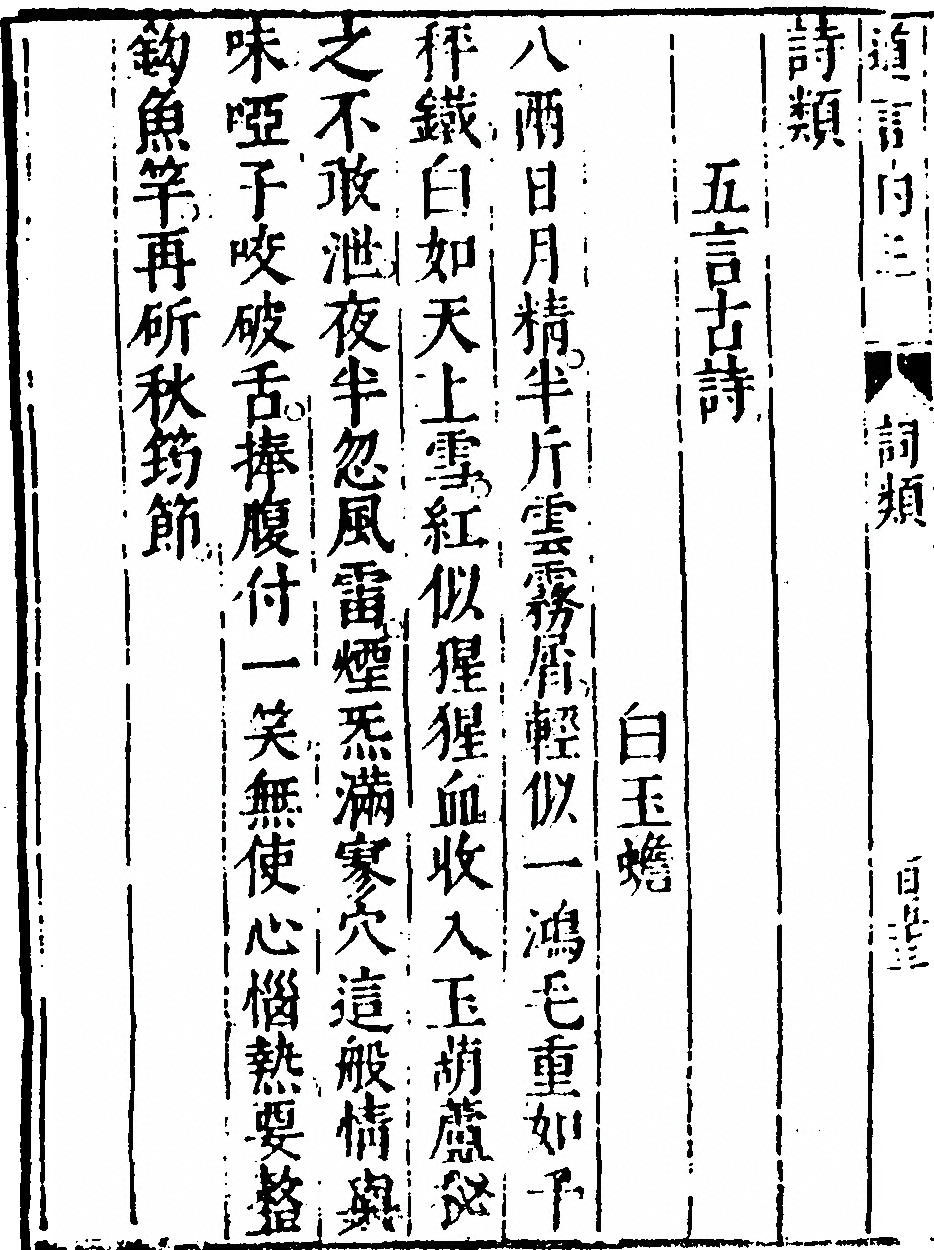 道言内三 詞類
詩類
五言古詩
白玉蟾
八兩日月精半斤雲霧屑輕似一鴻毛重如千
秤鐵白如天上雪紅似猩猩血收入玉葫蘆祕
之不敢泄夜半忽風雷煙炁滿寥穴這般情與
味啞子咬破舌捧腹付一笑無使心惱熱要整
釣魚竿再斫秋筠節